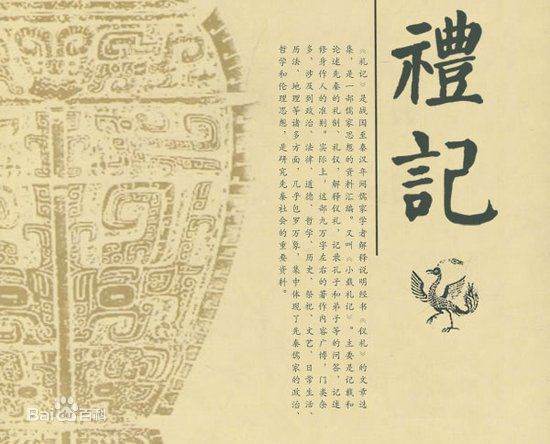 禮記
《礼记》是战国至秦汉年间儒家学者解释说明经书《仪礼》的文章选
集，是一部儒家思想的资料汇编。又叫《小戴礼记》。主要是记载和
论述先秦的礼制、礼仪，解释仪礼，记录孔子和弟子等的问答，记述
修身作人的准则。实际上，这部九万字左右的著作内容广博，门类杂
多，涉及到政治、法律、道德、哲学、历史、祭祀、文艺、日常生活、
历法、地理等诸多方面，几乎包罗万象，集中体现了先秦儒家的政治、
哲学和伦理思想，是研究先秦社会的重要资料。
Bai du 百科